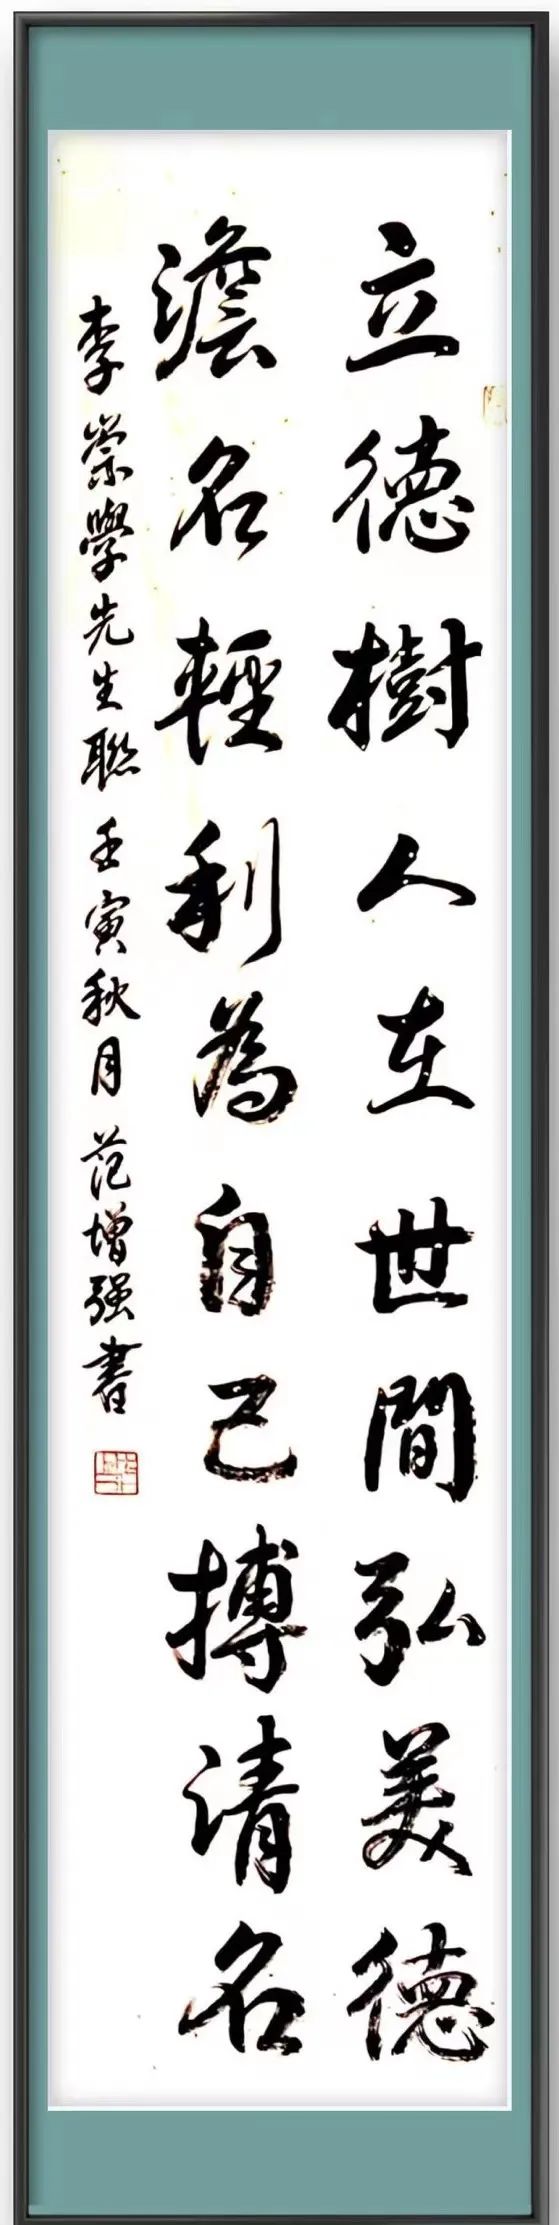 立德樹人在世間弘美德
澹名輕利為自己搏清名
李崇學先生聯 壬寅秋月 范增强書